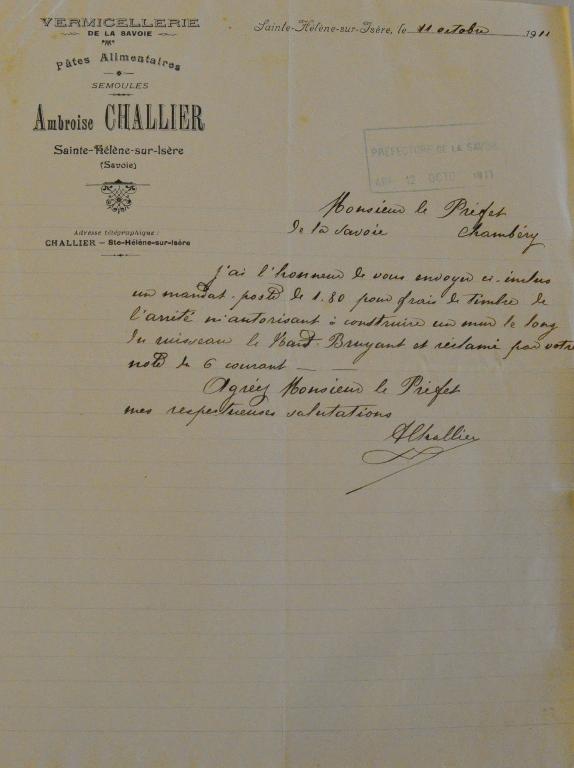 VERMICELLERIE
DE LA SAVOIE
Pâtes Alimentaires
SEMOULES
Ambroise CHALLIER
Sainte-Hélène-sur-Isère
(Savoie)
Adresse télégraphique :
CHALLIER — Ste-Hélène-sur-Isère
Sainte-Hélène-sur-Isère, le 11 octobre 1911
PRÉFECTURE DE LA SAVOIE
12 OCTO 1911
Monsieur le Préfet
de la Savoie Chambéry
J'ai l'honneur de vous envoyer ci-inclus
un mandat-poste de 1.80 pour frais de timbre de
l'arrêté m'autorisant à construire un mur le long
du ruisseau le Bruyant et réclamé par votre
note du 6 courant —
Agréez Monsieur le Préfet
mes respectueuses salutations
AChallier